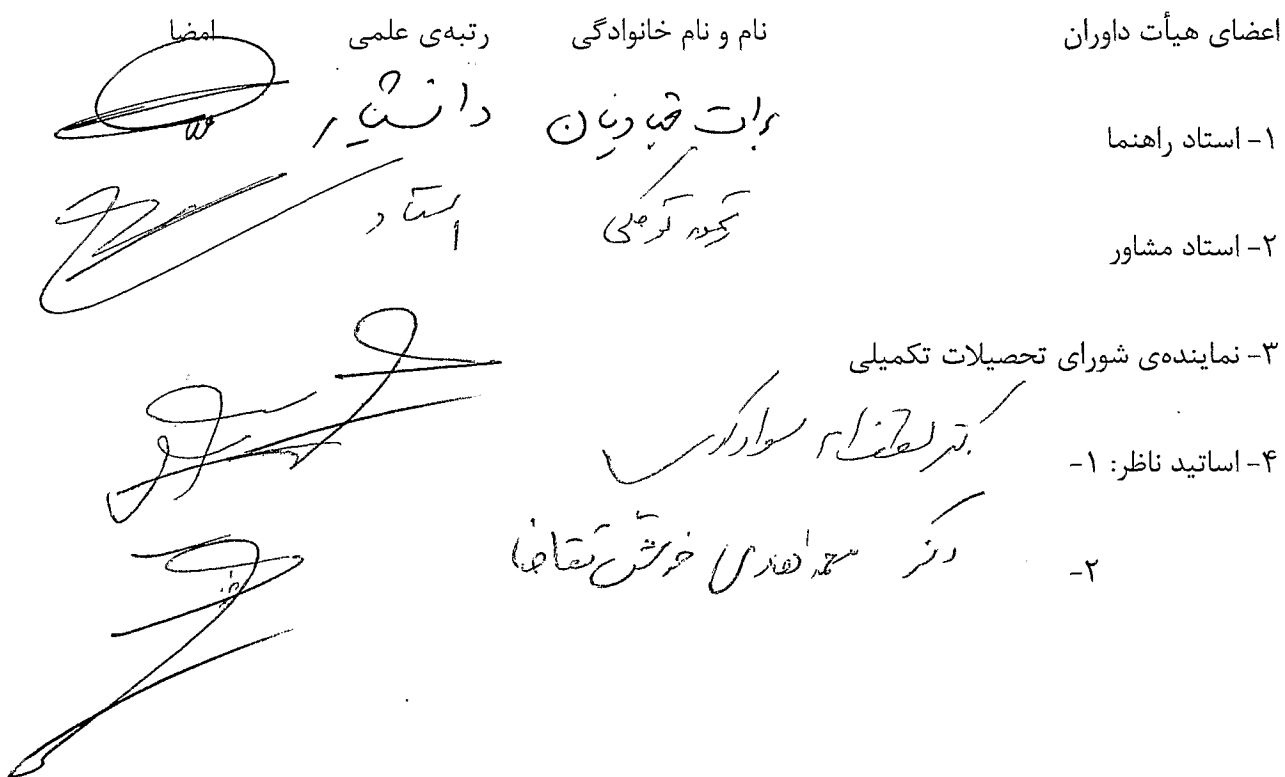 اعضای هیأت داوران نام و نام خانوادگی رتبه‌ی علمی امضا
۱- استاد راهنما برات قبادیان دانشیار
۲- استاد مشاور استاد
۳- نماینده‌ی شورای تحصیلات تکمیلی
۴- اساتید ناظر: ۱- دکتر
۲- دکتر محمدهادی خوش تقاضا